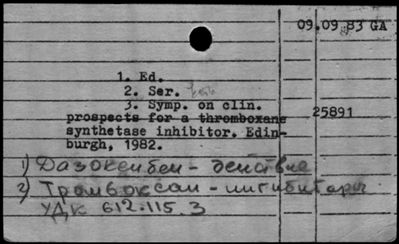 09.09.83 GA
1. Ed.
2. Ser.
3. Symp. on clin.
prospects for a thromboxane
25891
synthetase inhibitor. Edin-
burgh, 1982.
1) Дазоксибен - действие
2) Тромбоксан - ингибиторы
УДК 612.115.3